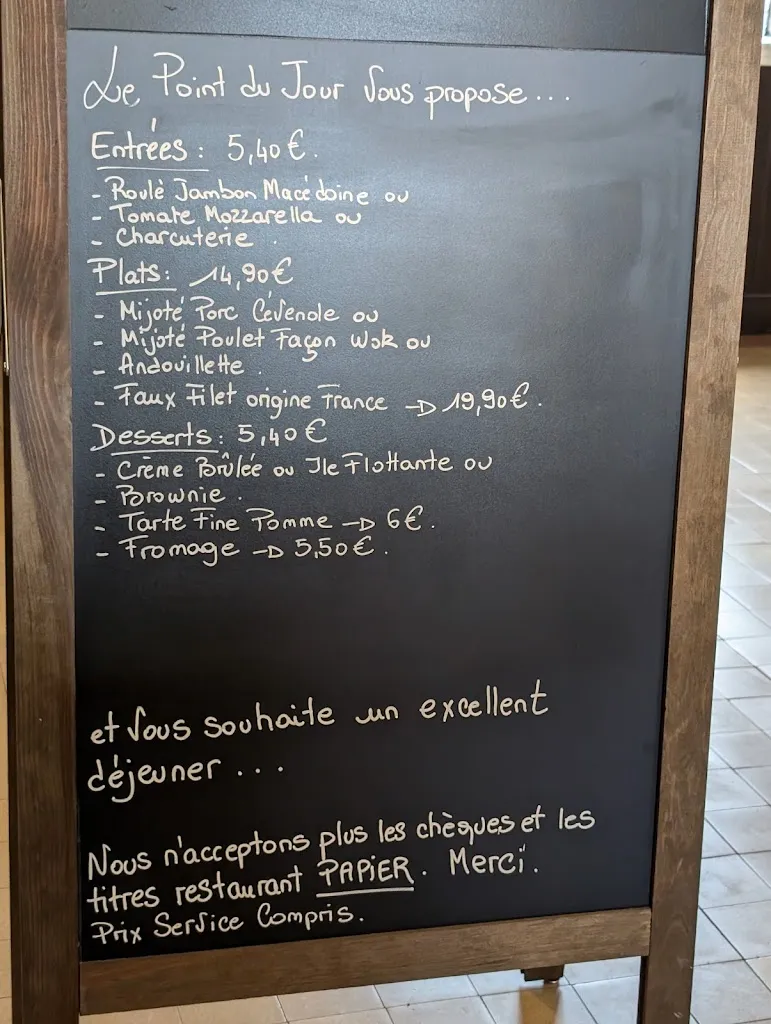 Le Point du Jour Vous propose...
Entrées : 5,40€.
- Roulè Jambon Macédoine ou
- Tomate Mozzarella ou
- Charcuterie .
Plats : 14,90€
- Mijoté Porc Cévenole ou
- Mijoté Poulet Façon Wok ou
- Andouillette .
- Faux Filet origine France → 19,90€.
Desserts : 5,40€
- Crème Brûlée ou Ile Flottante ou
- Brownie .
- Tarte Fine Pomme → 6€.
- Fromage → 5,50€.
et Vous souhaite un excellent
déjeuner ...
Nous n'acceptons plus les chèques et les
titres restaurant PAPIER. Merci.
Prix Service Compris.